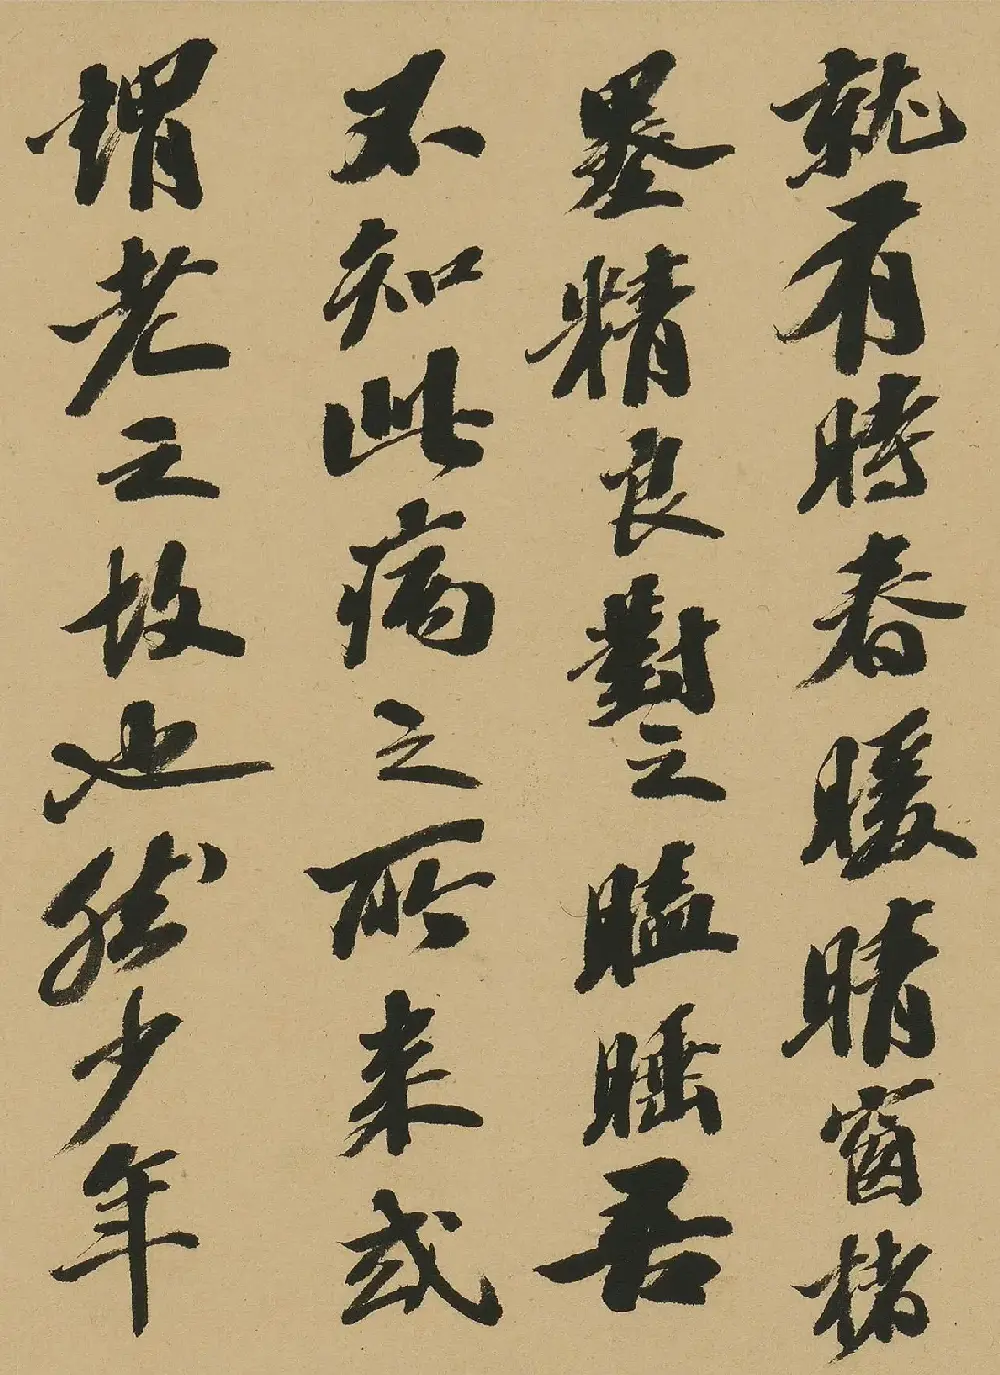 就有時春暖晴窗楮
墨精良對之瞌睡吾
不知此病之所來或
謂老之故也然少年